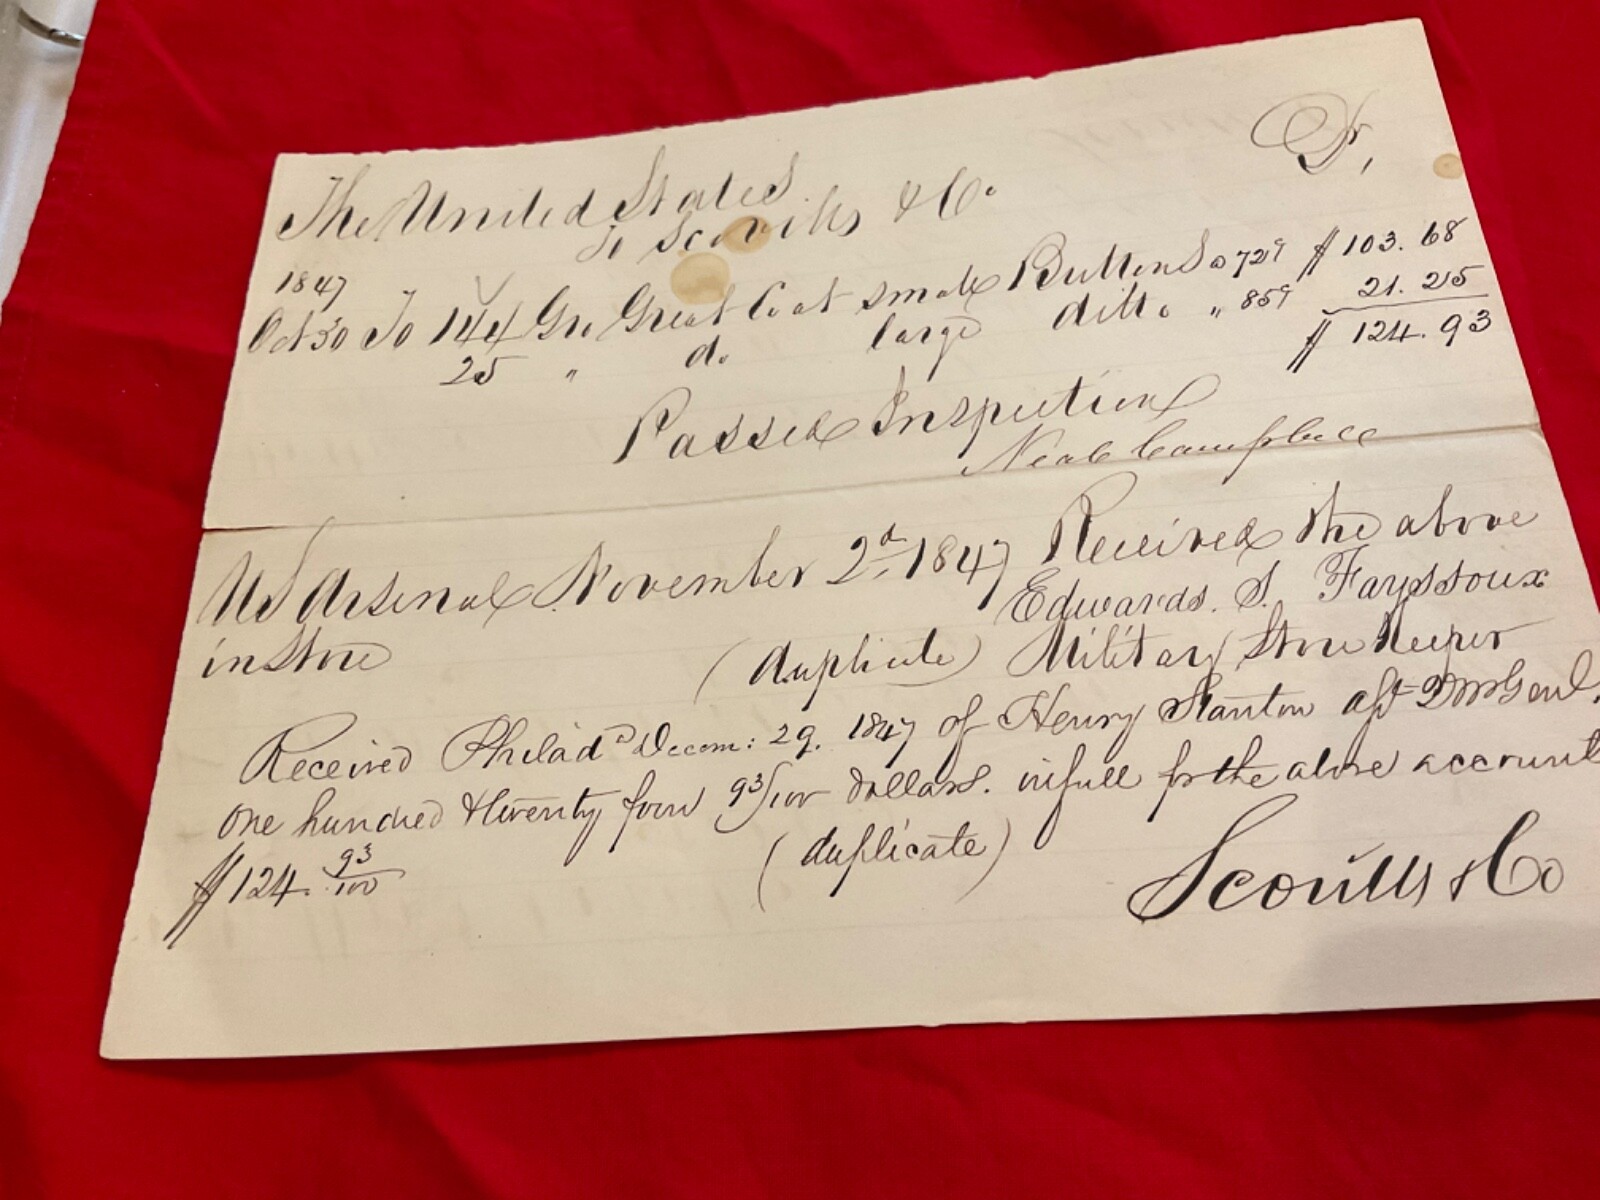 The United States Dr,
To Scovills & Co.
1847
Oct 30 To 144 Gro Great Coat small Buttons @ 72¢ $ 103. 68
25 " do large ditto " 85¢ 21. 25
$ 124. 93
Passed Inspection
Neal Campbell
US Arsenal November 2d 1847 Received the above
in Store Edwards. S. Fayssoux
(duplicate) Military Store Keeper
Received Philada Decem: 29. 1847 of Henry Stanton asst QMGenl.
One hundred & twenty four 93/100 dollars. in full for the above account
$ 124. 93/100 (duplicate)
Scovills & Co